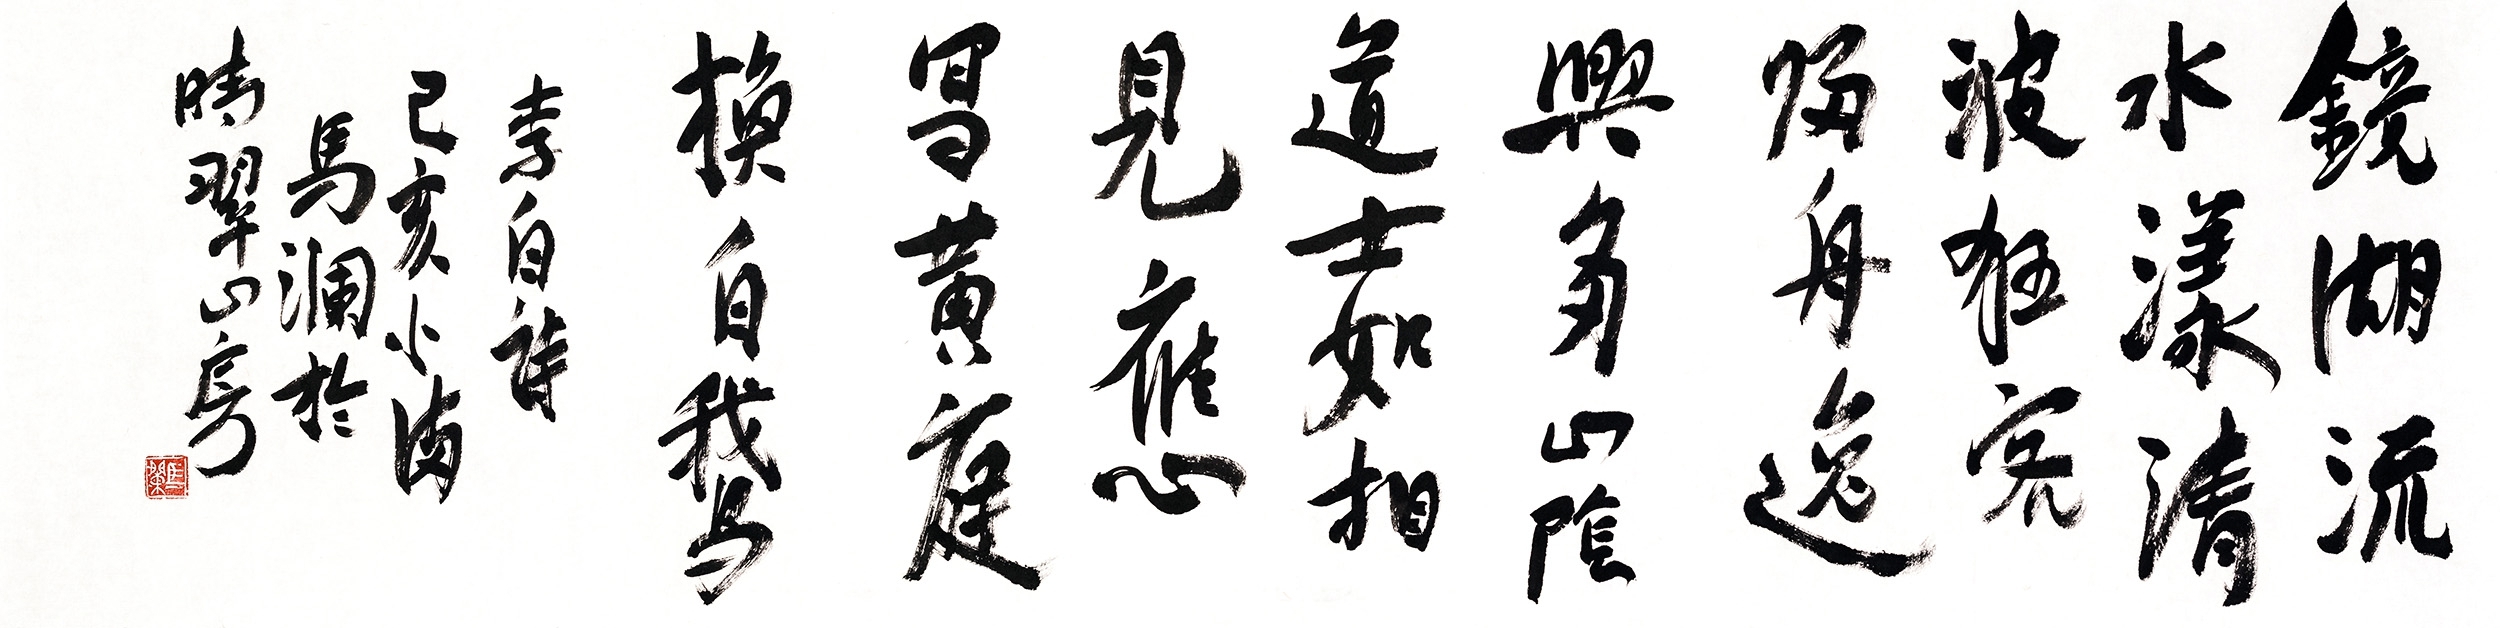 鏡湖流
水漾清
波狂客
歸舟逸
興多山陰
道士如相
見應
寫黄庭
換白鵞
李白詩
己亥小滿
馬瀾於
晴翠山房